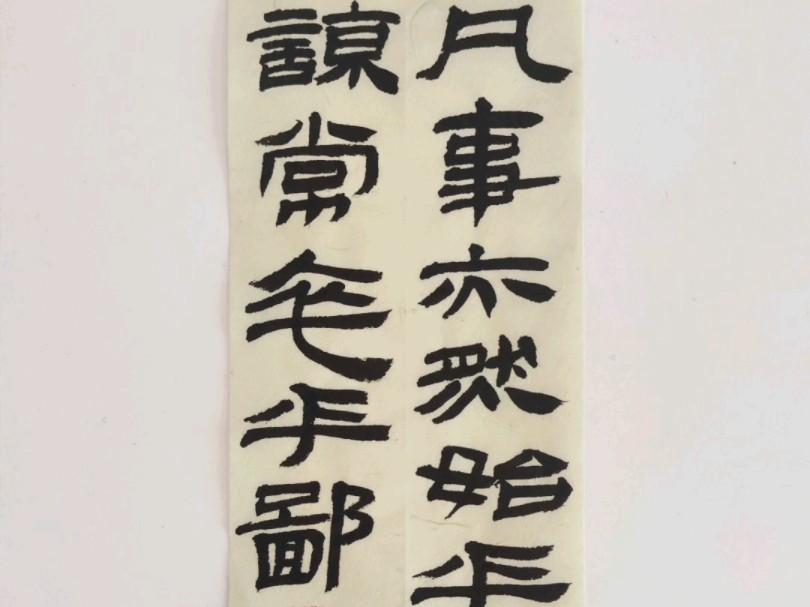 凡事亦然始乎
諒常卒乎鄙